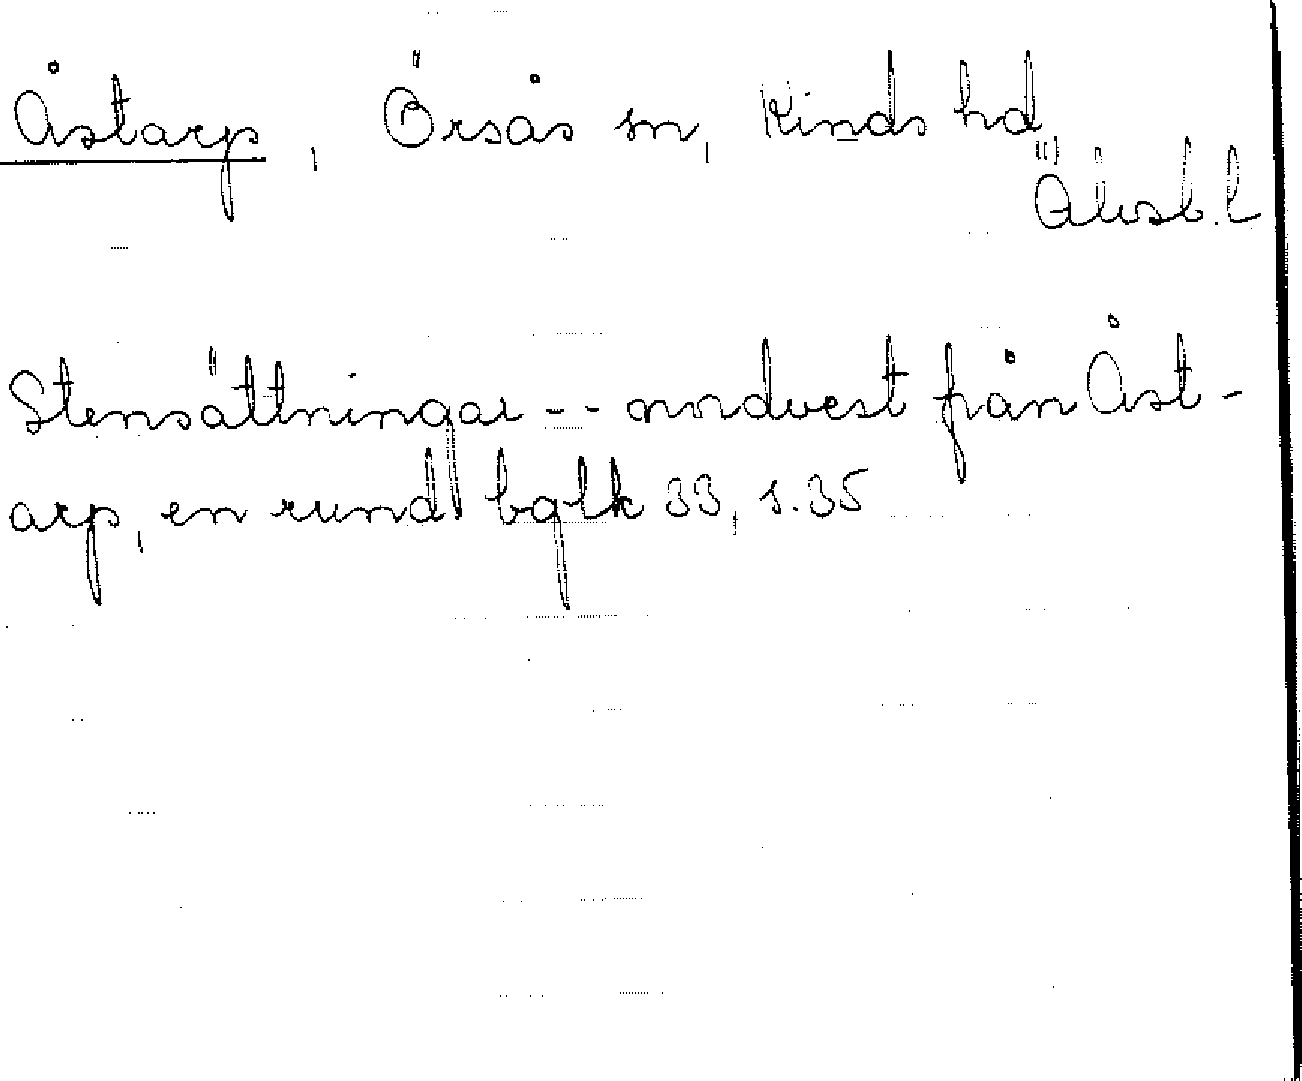 Åstarp, Örsås sn, Kinds hd,
Älvsb. l
Stensättningar -- nordvest från Åst-
arp, en rund bglk 33, s. 35